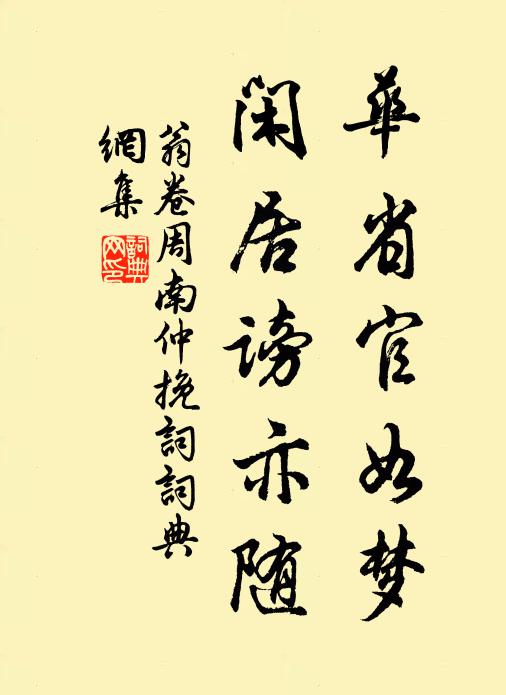 華省官如梦
闲居謗亦随
翁卷周南仲挽詞詞典
網集
詞典網印